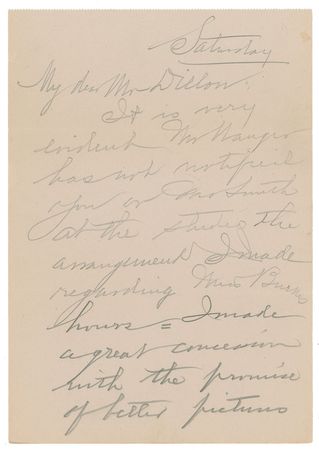 Saturday
My dear Mr Dillon:
It is very
evident Mr Wanger
has not notified
you or Mr Smith
at the studio the
arrangement I made
regarding Miss
hours = I made
a great concession
with the promise
of better pictures